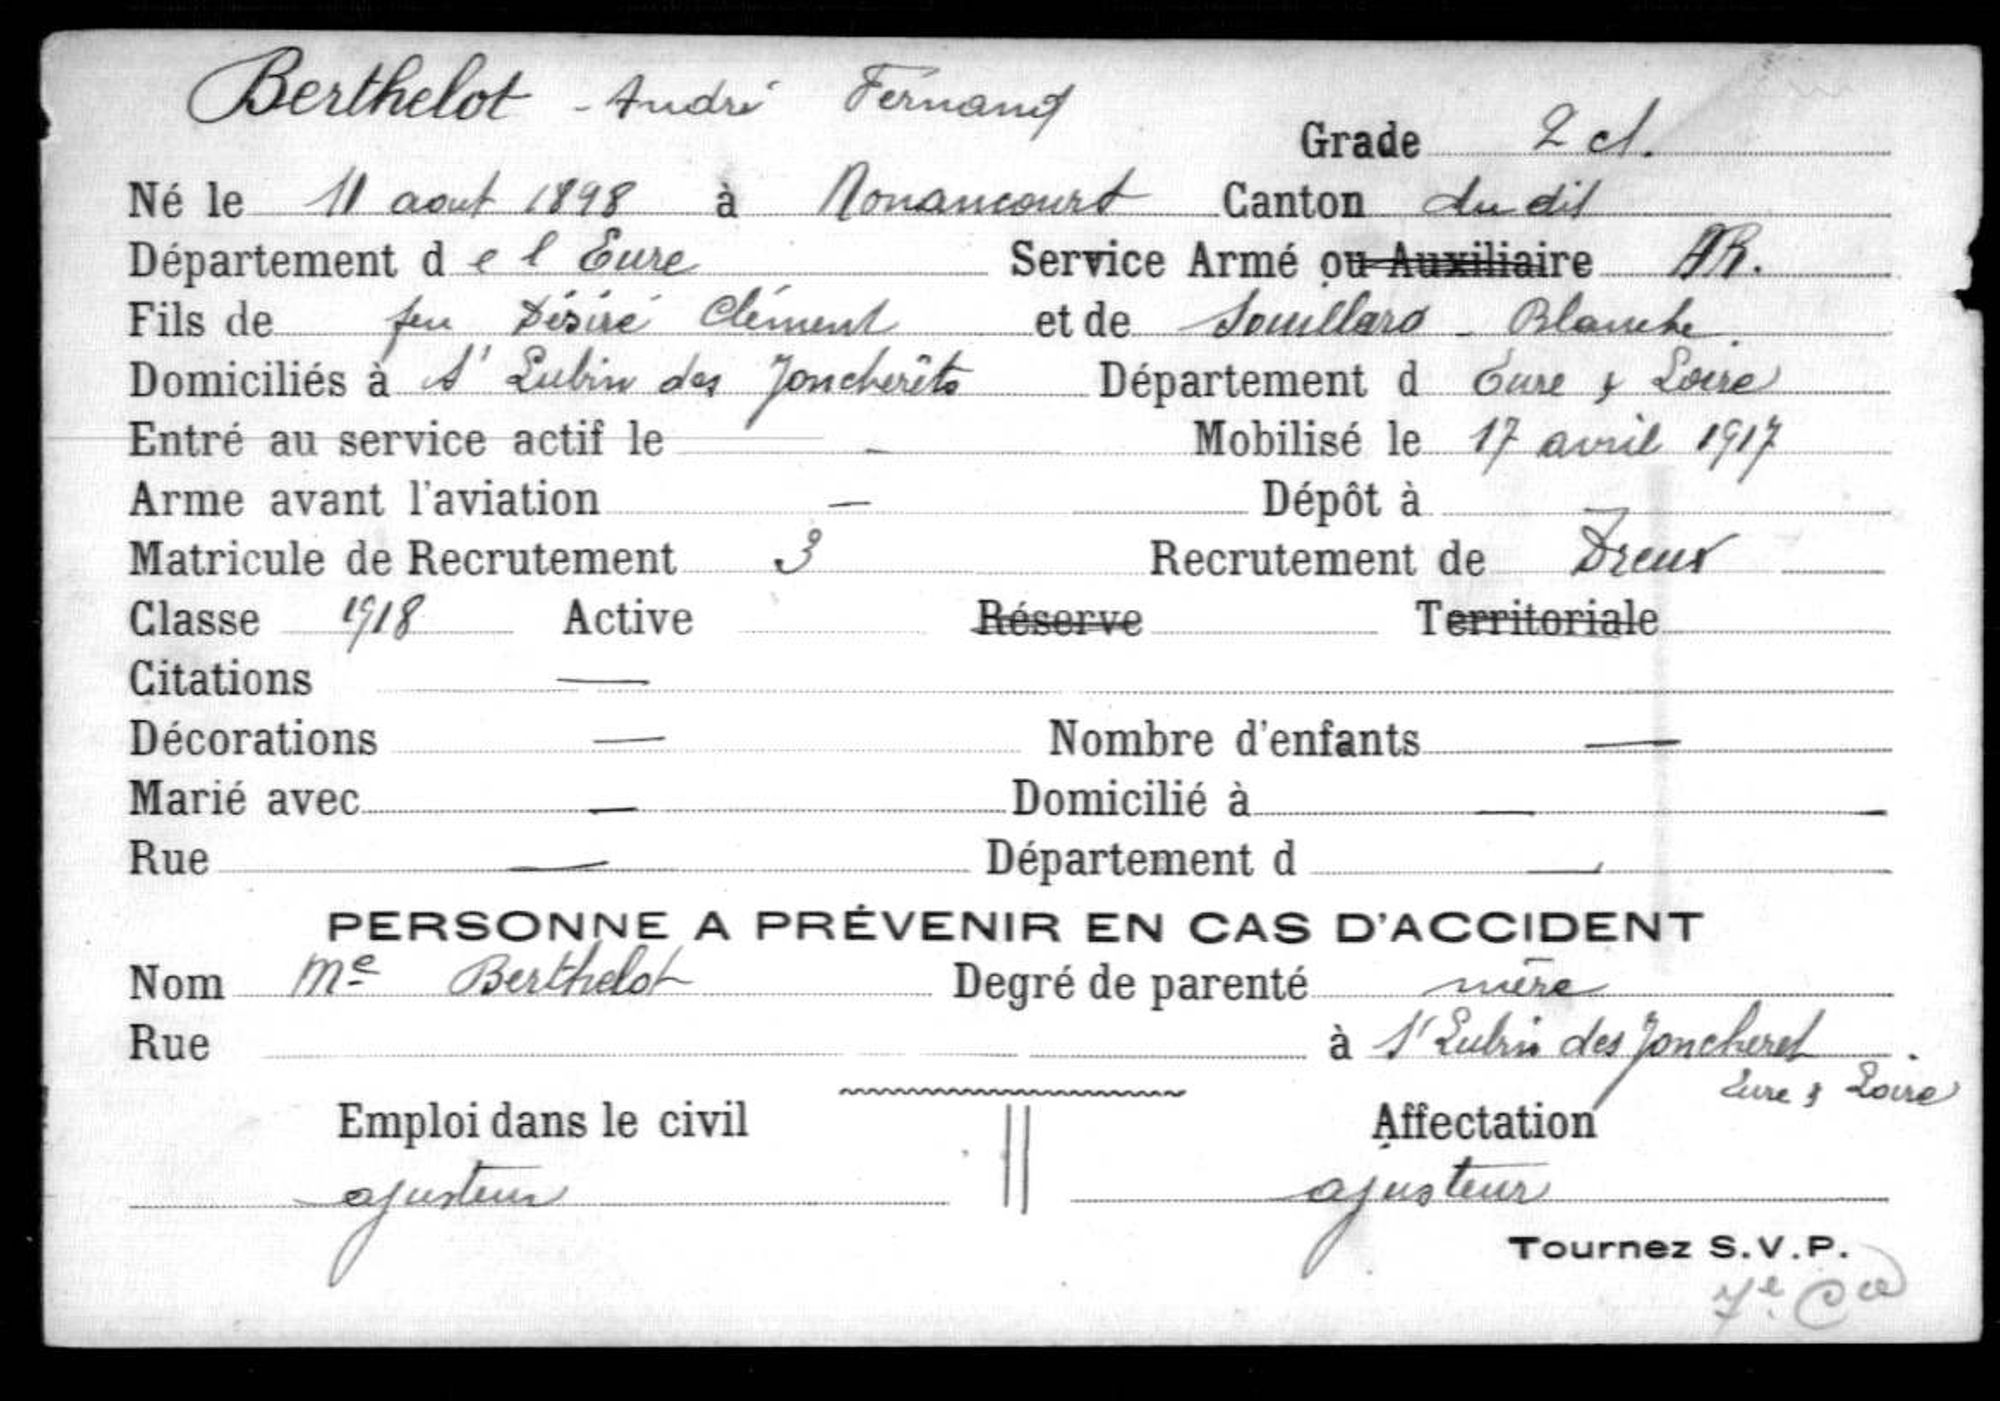 Berthelot - André Fernand
Grade 2 cl.
Né le 11 aout 1898 à Nonancourt Canton du dit
Département d e l Eure Service Armé ou Auxiliaire AR.
Fils de feu Désiré Clément et de Souillard - Blanche
Domiciliés à St Lubin des Joncherêts Département d Eure & Loire
Entré au service actif le — Mobilisé le 17 avril 1917
Arme avant l'aviation — Dépôt à
Matricule de Recrutement 3 Recrutement de Dreux
Classe 1918 Active Réserve Territoriale
Citations —
Décorations — Nombre d'enfants —
Marié avec — Domicilié à —
Rue — Département d —
PERSONNE A PRÉVENIR EN CAS D'ACCIDENT
Nom Me Berthelot Degré de parenté mère
Rue à St Lubin des Joncheret.
Eure & Loire
Emploi dans le civil Affectation
ajusteur ajusteur
Tournez S.V.P.
7e Cie